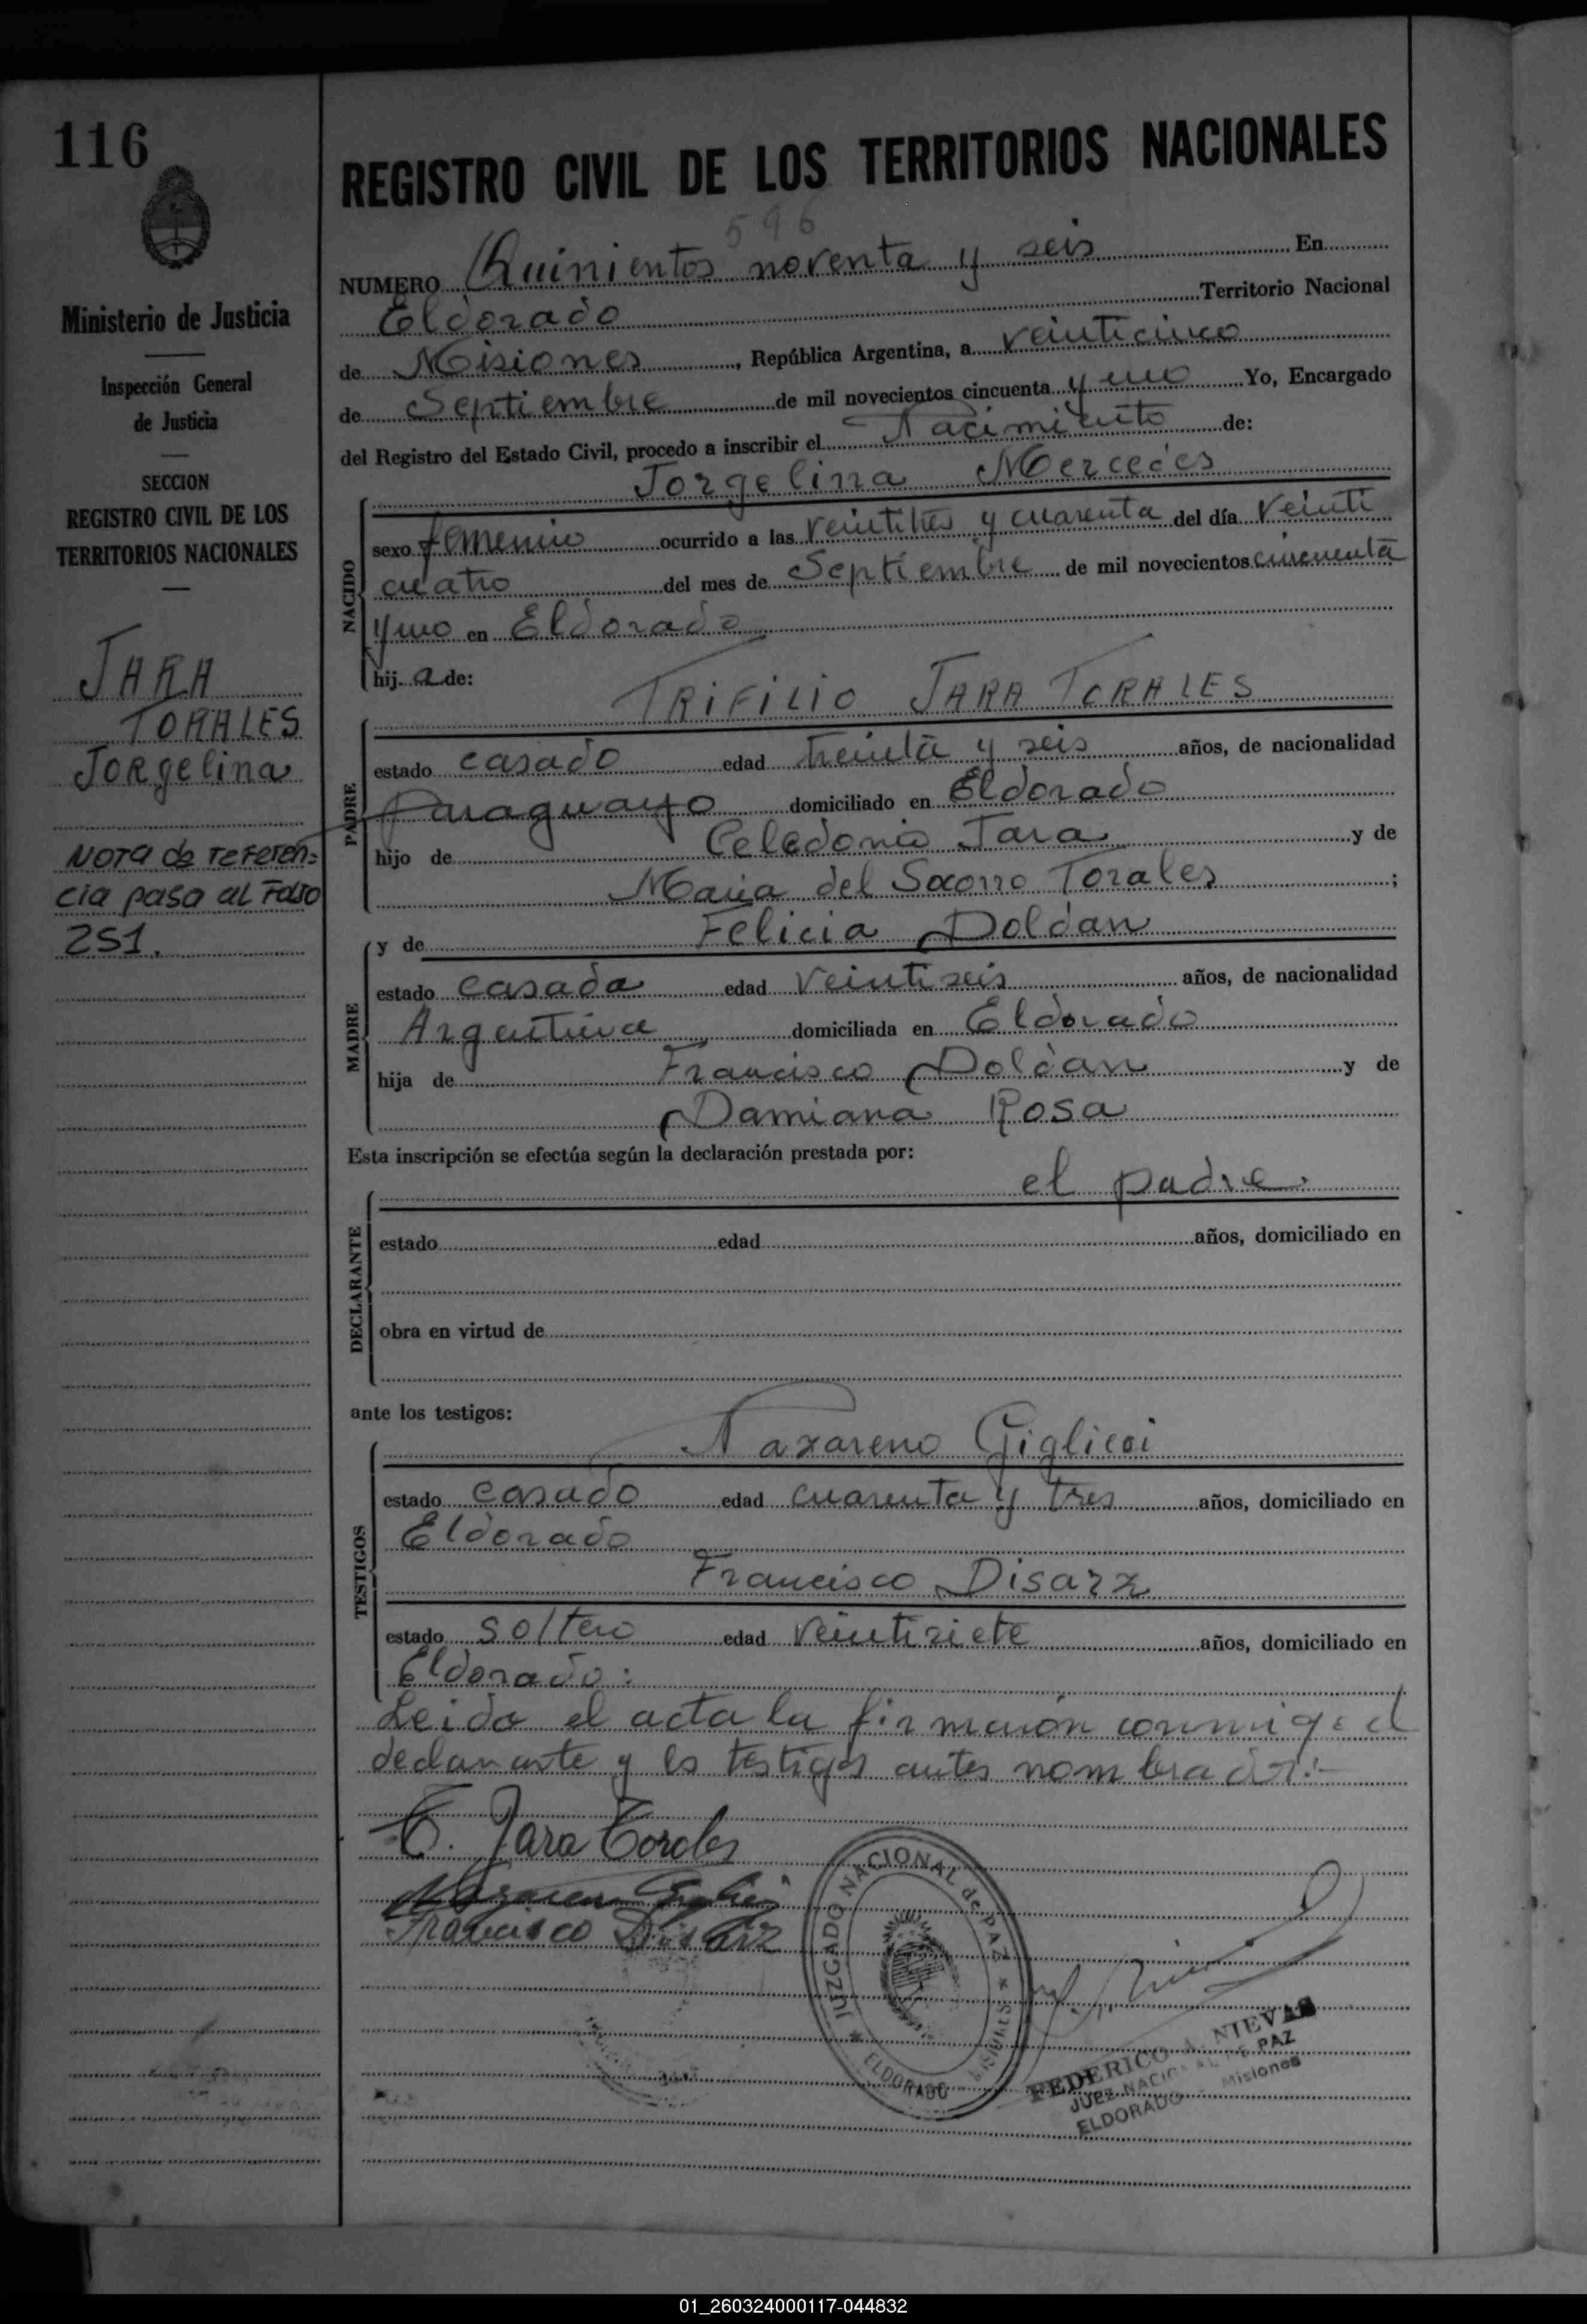 116
Ministerio de Justicia
Inspección General
de Justicia
SECCION
REGISTRO CIVIL DE LOS
TERRITORIOS NACIONALES
JARA
TORALES
Jorgelina
Nota de referen=
cia pasa al Folio
251.
REGISTRO CIVIL DE LOS TERRITORIOS NACIONALES
596
NUMERO Quinientos noventa y seis En
Eldorado Territorio Nacional
de Misiones, República Argentina, a veinticinco
de Septiembre de mil novecientos cincuenta y uno Yo, Encargado
del Registro del Estado Civil, procedo a inscribir el Nacimiento de:
Jorgelina Mercedes
NACIDO
sexo femenino ocurrido a las veintitres y cuarenta del día veinti
cuatro del mes de Septiembre de mil novecientos cincuenta
y uno en Eldorado
hij a de:
TRIFILIO JARA TORALES
PADRE
estado casado edad treinta y seis años, de nacionalidad
Paraguayo domiciliado en Eldorado
hijo de Celedonio Jara y de
Maria del Socorro Torales;
y de Felicia Doldan
MADRE
estado casada edad veintiseis años, de nacionalidad
Argentina domiciliada en Eldorado
hija de Francisco Doldan y de
Damiana Rosa
Esta inscripción se efectúa según la declaración prestada por:
el padre.
DECLARANTE
estado edad años, domiciliado en
obra en virtud de
ante los testigos:
Nazareno Giglioi
TESTIGOS
estado casado edad cuarenta y tres años, domiciliado en
Eldorado
Francisco Disarz
estado soltero edad veintisiete años, domiciliado en
Eldorado:
Leida el acta la firmaron conmigo el
declarante y los testigos antes nombrados:-
T. Jara Torales
Francisco Disarz
JUZGADO NACIONAL de PAZ
ELDORADO MISIONES
FEDERICO A. NIEVAS
JUEZ NACIONAL DE PAZ
ELDORADO - Misiones
01_260324000117-044832